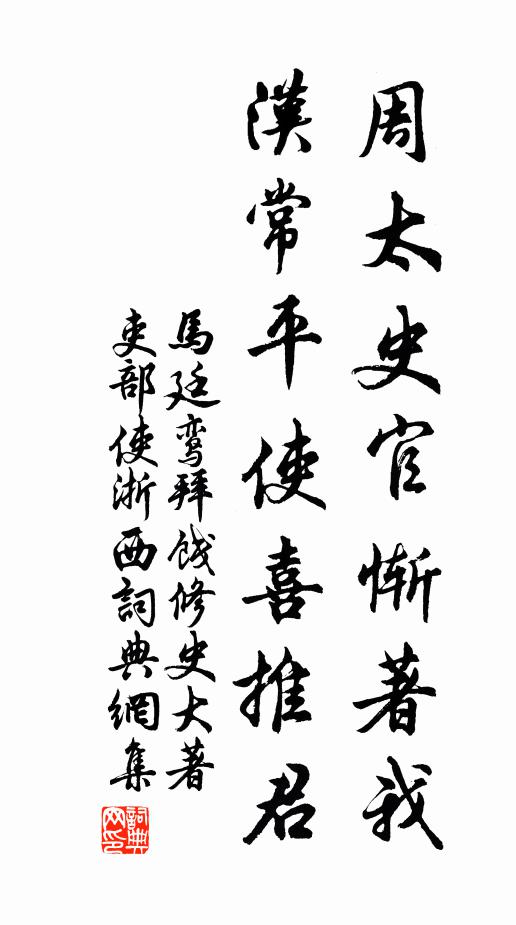 周太史官慚著我
漢常平使喜推君
馬廷鸞拜餞修史大著
吏部使浙西詞典網集
詞典网印